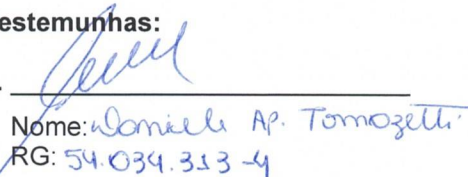 estemunhas:
Nome: Daniele Ap. Tomozetti
RG: 54.034.313-4